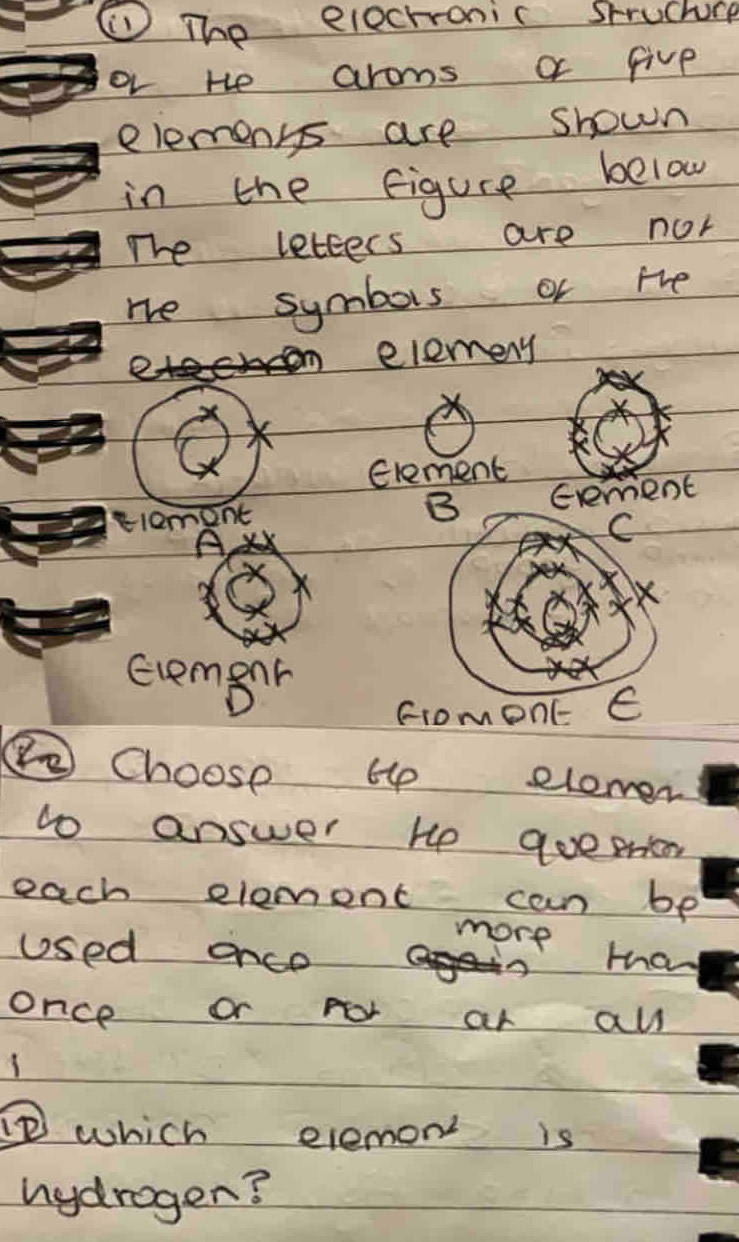 ① The electronic structure
of the atoms of five
elements are shown
in the figure below
The letters are not
the symbols of the
element
Element
A
Element
B
Element
C
Element
D
Element E
Choose the elemen
to answer the question
each element can be
used once more than
once or not at all
1
which element is
hydrogen?